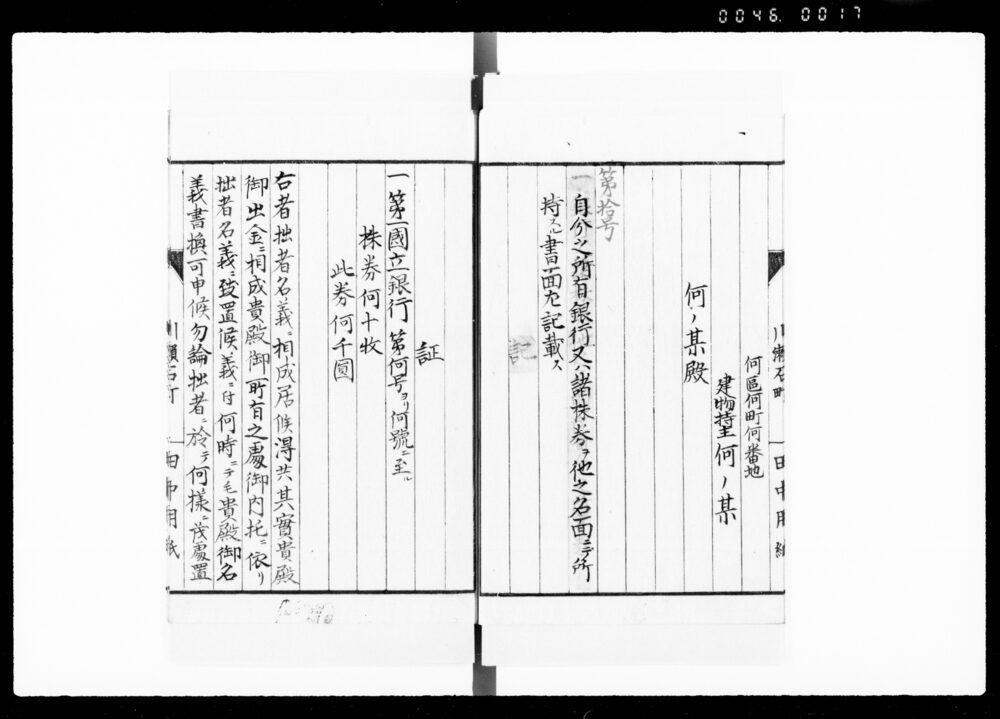 0046. 0017
何區何町何番地
建物持主 何ノ某
何ノ某殿
第拾号
一自分之所有銀行又ハ諸株券ヲ他之名面ニテ所
持スル書面左ニ記載ス
証
一第一國立銀行 第何号ヨリ何號ニ至ル
株券何十枚
此券何千圓
右者拙者名義ニ相成居候得共其實貴殿
御出金ニ相成貴殿御所有之處御内托ニ依リ
拙者名義ニ致置候義ニ付何時ニテモ貴殿御名
義書換可申候勿論拙者ニ於テ何様ニ茂處置